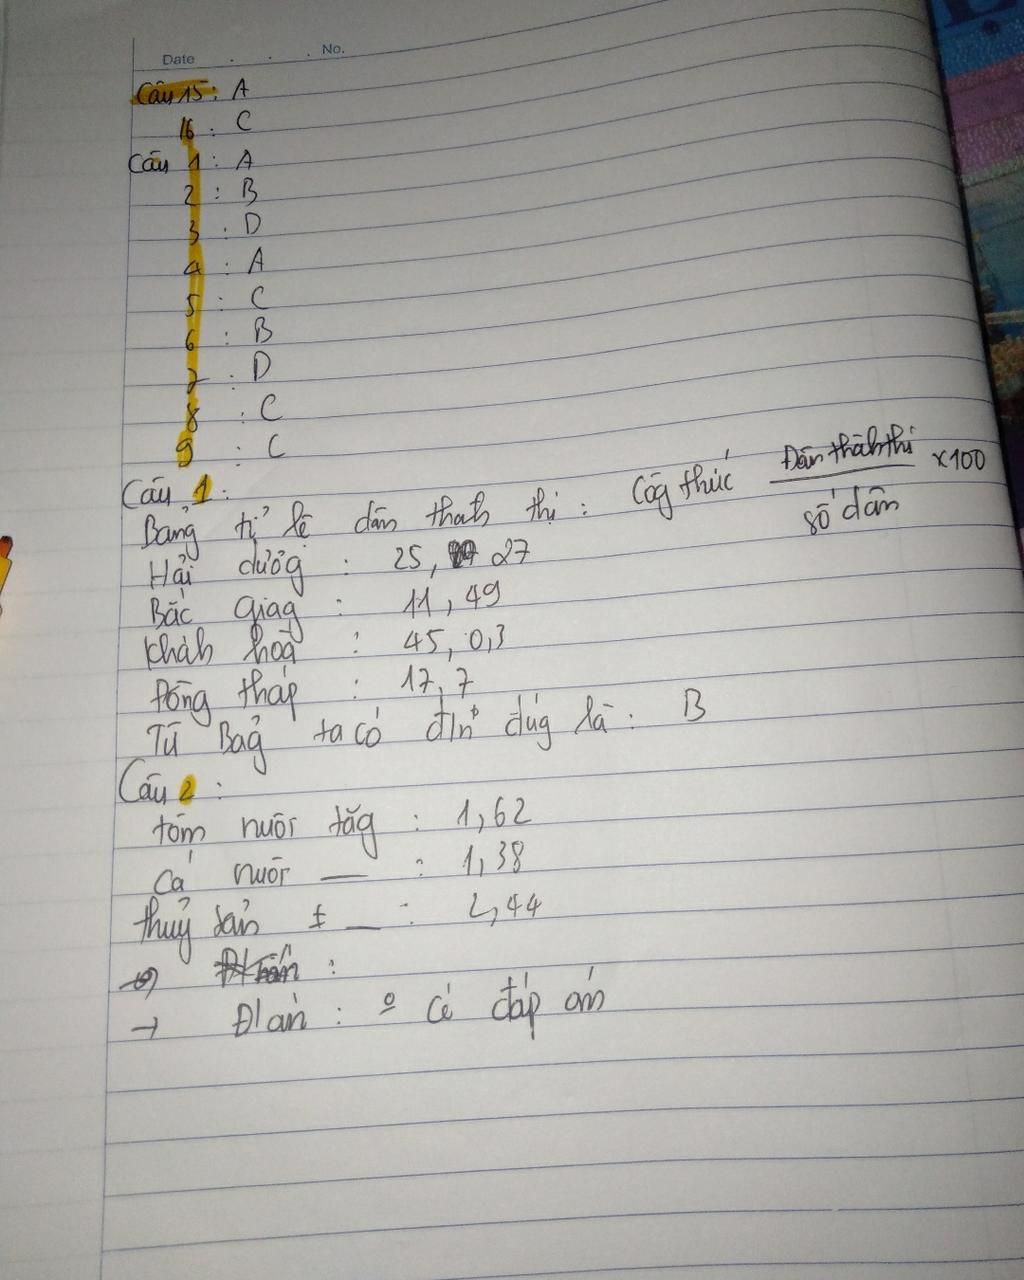 Date . . . No.
Câu 15 : A
16 : C
Câu 1 : A
2 : B
3 : D
4 : A
5 : C
6 : B
7 : D
8 : C
9 : C
Câu 1 :
Bảng tỉ lệ dân thành thị : Côg thức Dân thành thị / số dân x100
Hải dươg : 25, 27
Bắc Giag : 11, 49
Khánh hoà : 45, 0,3
Đồng tháp : 17, 7
Từ Bảg ta có đ/n đúg là : B
Câu 2 :
tôm nuôi tăg : 1,62
Cá nuôi — : 1,38
thuỷ sản — : 2,44
→ Đ/án : º Có đáp án